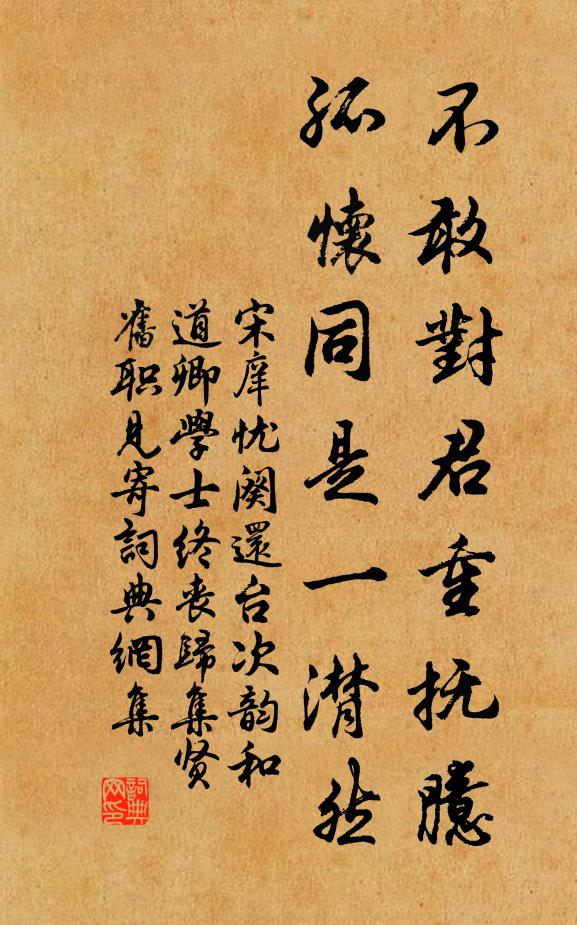 不敢對君重抚臆
孤懷同是一潸然
宋庠忧阕還台次韵和
道卿學士终丧歸集贤
舊职见寄詞典網集
詞典网印